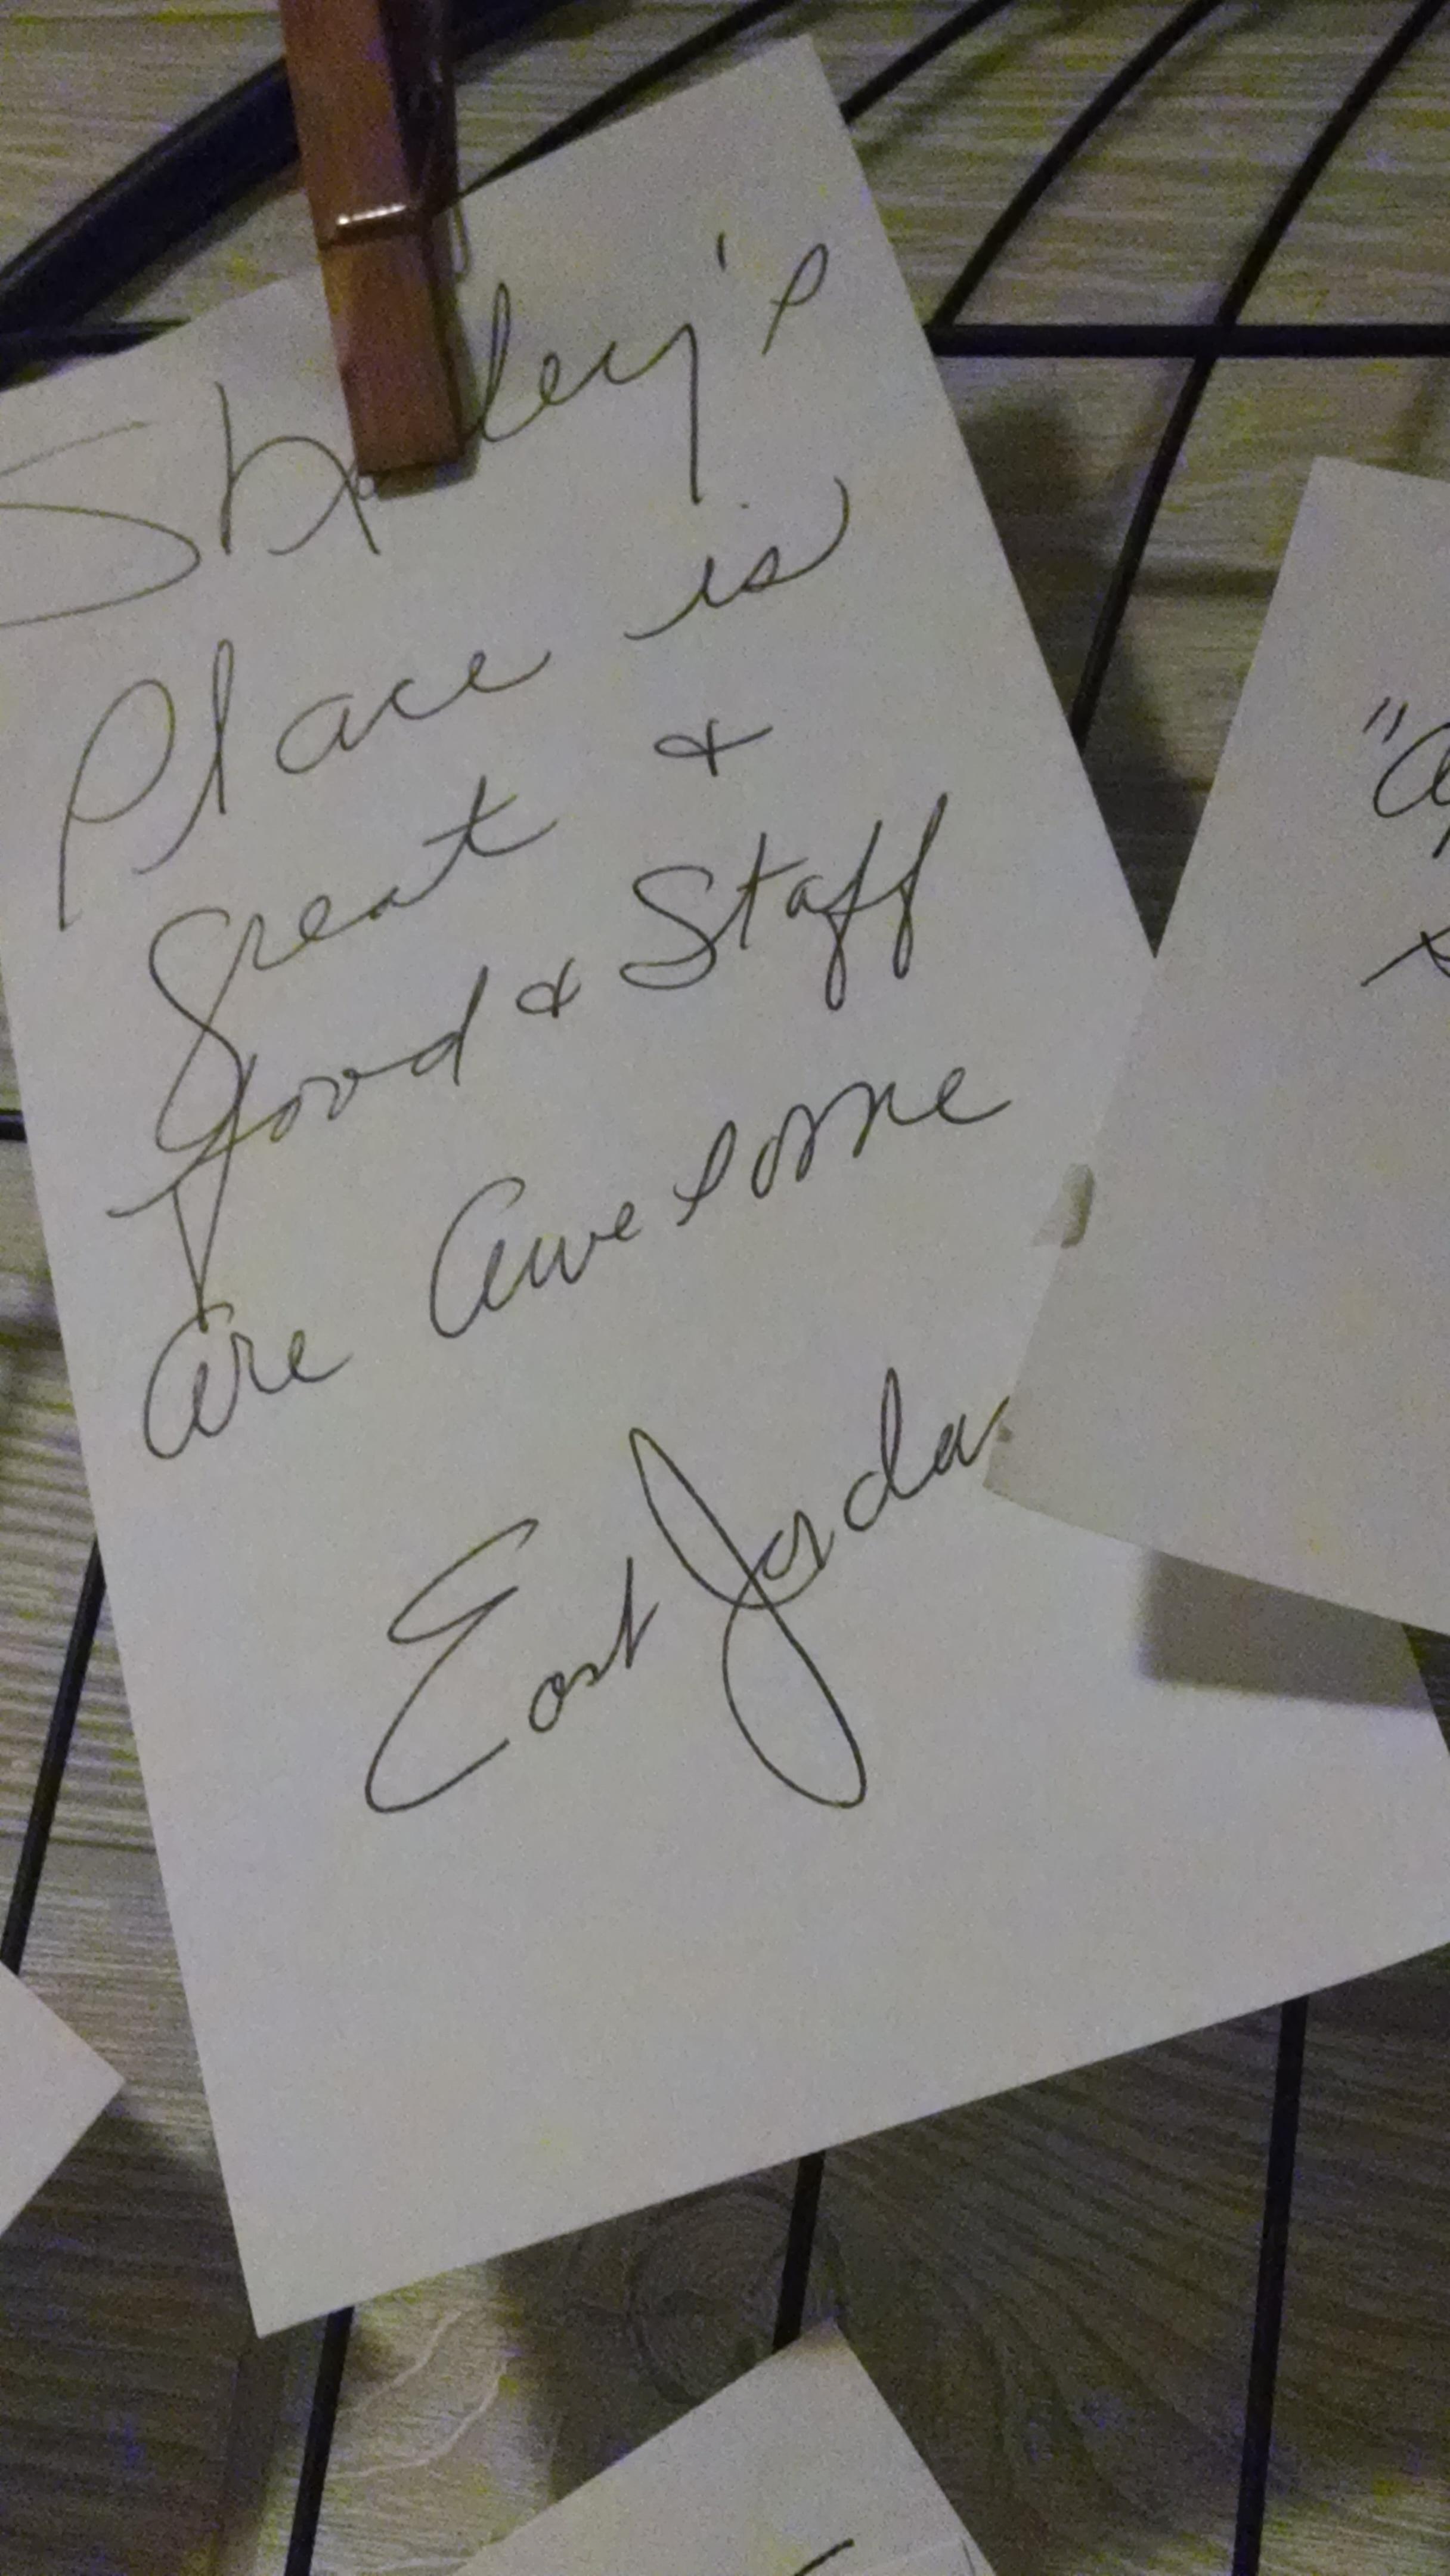 Place is
Great +
food & Staff
are awesome
East Jorda